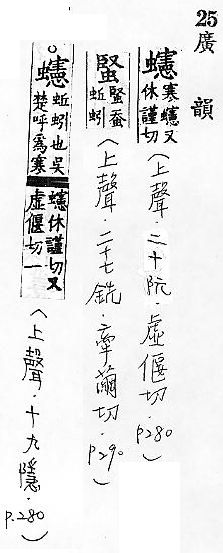 25 廣韻
䘆 寒䘆又休謹切 (上聲·二十阮·虛偃切·P280)
蜸 蜸蚕蚯蚓 (上聲·二十七銑·牽繭切·P290)
○䘆 蚯蚓也吳楚呼爲寒䘆休謹切又虛偃切一 (上聲·十九隱·P.280)